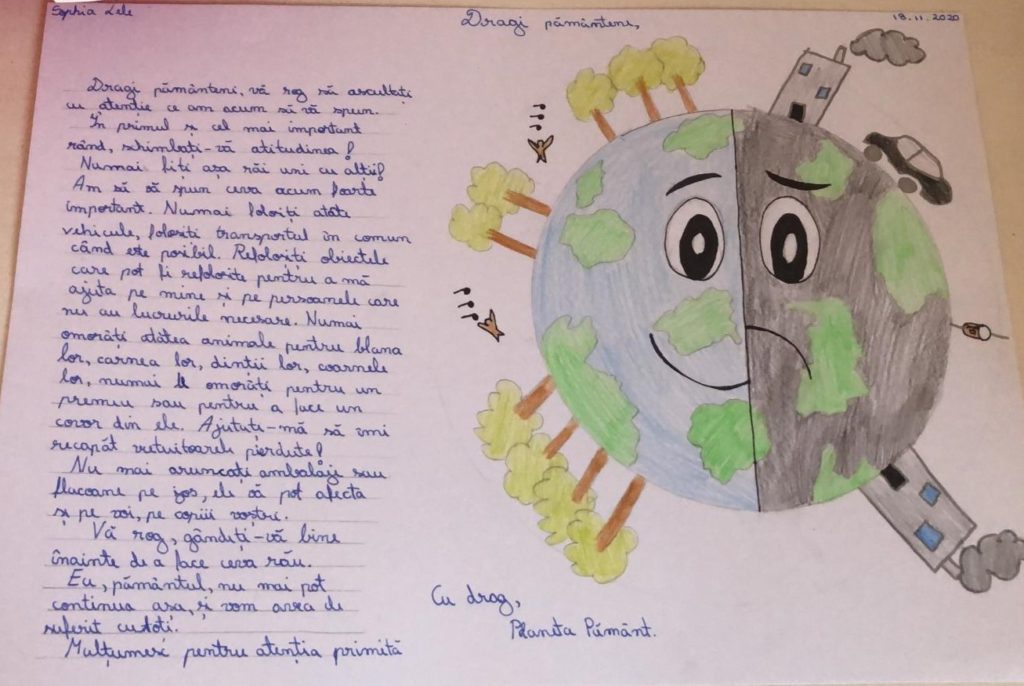 Sophia Lele
Dragi pământeni,
18.11.2020
Dragi pământeni, vă rog să ascultați
cu atenție ce am acum să vă spun.
În primul și cel mai important
rând, schimbați-vă atitudinea!
Numai fiți așa răi uni cu alții!
Am să vă spun ceva acum foarte
important. Numai folosiți atâte
vehicule, folosiți transportul în comun
când este posibil. Refolosiți obiectele
care pot fi refolosite pentru a mă
ajuta pe mine și pe persoanele care
nu au lucrurile necesare. Numai
omorâți atâtea animale pentru blana
lor, carnea lor, dinții lor, coarnele
lor, numai le omorâți pentru un
premiu sau pentru a face un
covor din ele. Ajutați-mă să îmi
recapăt viețuitoarele pierdute!
Nu mai aruncați ambalaje sau
flacoane pe jos, ele vă pot afecta
și pe voi, pe copiii voștri.
Vă rog, gândiți-vă bine
înainte de a face ceva rău.
Eu, pământul, nu mai pot
continua așa, și vom avea de
suferit cu toți.
Mulțumesc pentru atenția primită
Cu drag,
Planeta Pământ.